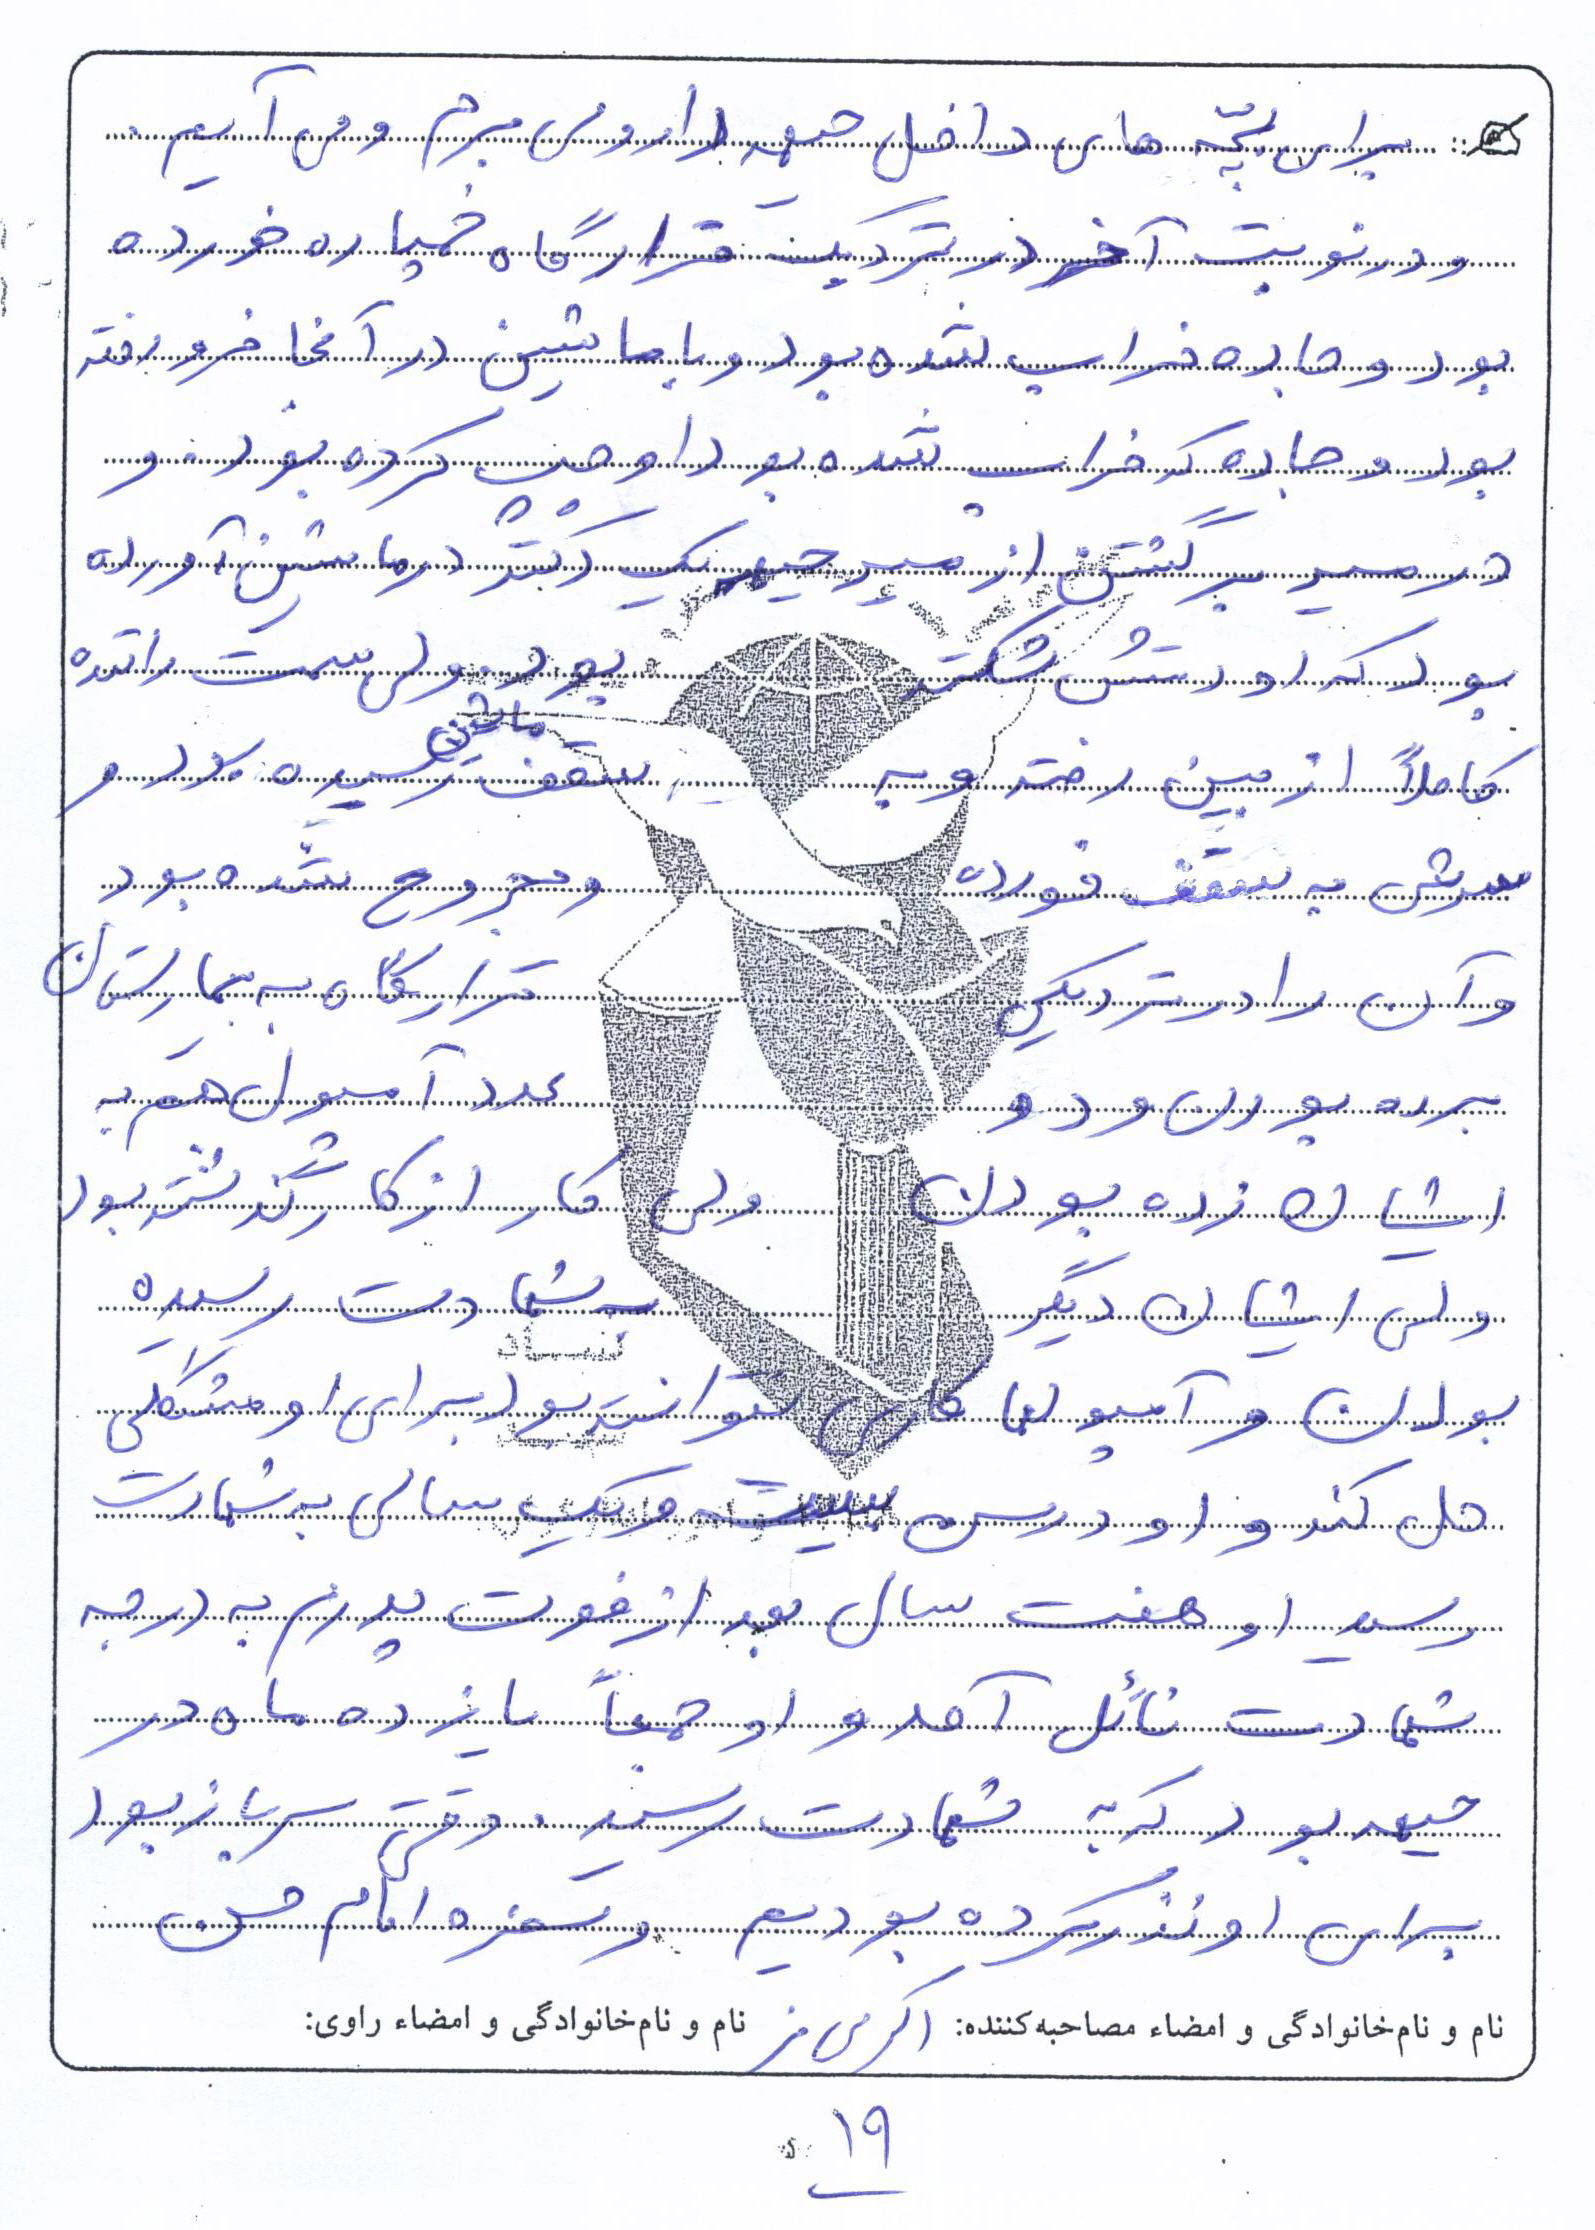 برای بچّه های داخل جبهه دارو می برم و می آیم.
و در نوبت آخر در نزدیک قرارگاه خمپاره خورده
بود و جاده خراب شده بود و با ماشین در آنجا فرو رفته
بود و جاده که خراب شده بود او چپ کرده بود. و
در مسیر برگشتن از مسیر جبهه یک دکتر در ماشین آورده
بود که او دستش شکسته بود ولی سمت راننده
کاملاً از بین رفته و به سقف ماشین رسیده بود و
سرش به سقف خورده و مجروح شده بود
و آن را در نزدیکی قرارگاه به بیمارستان
برده بودن و دو عدد آمپول هم به
ایشان زده بودن ولی کار از کار گذشته بود
ولی ایشان دیگر به شهادت رسیده
بودن و آمپولها کاری نتوانسته بود برای او مشکلی
حل کند و او در سن بیست و یک سالی به شهادت
رسید او هفت سال بعد از فوت پدرم به درجه
شهادت نائل آمد و او جمعاً یازده ماه در
جبهه بود که به شهادت رسید. وقتی سرباز بود
برای او نذر کرده بودیم و سفره امام حسن
نام و نام‌خانوادگی و امضاء مصاحبه‌کننده: نام و نام‌خانوادگی و امضاء راوی:
۱۹